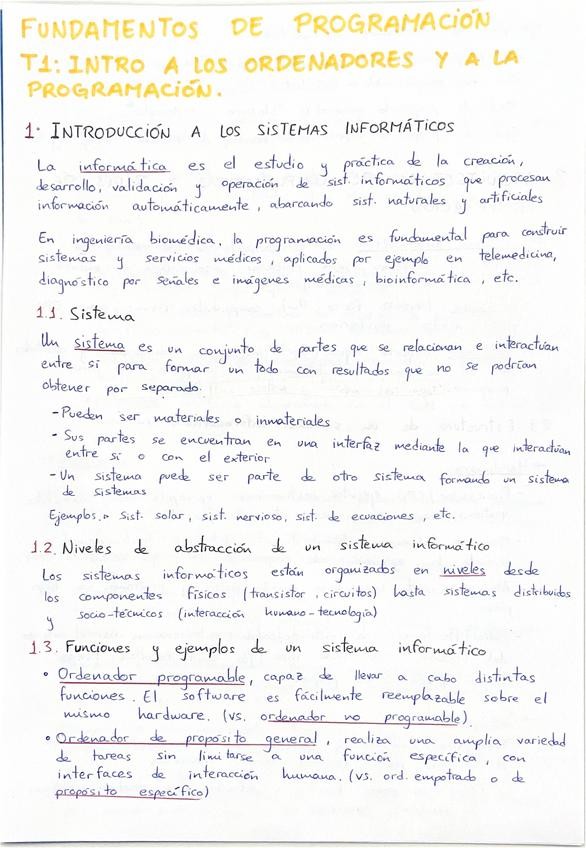 FUNDAMENTOS DE PROGRAMACIÓN
T1: INTRO A LOS ORDENADORES Y A LA
PROGRAMACIÓN.
1. INTRODUCCIÓN A LOS SISTEMAS INFORMÁTICOS
La informática es el estudio y práctica de la creación,
desarrollo, validación y operación de sist. informáticos que procesan
información automáticamente, abarcando sist. naturales y artificiales
En ingeniería biomédica, la programación es fundamental para construir
sistemas y servicios médicos, aplicados por ejemplo en telemedicina,
diagnóstico por señales e imágenes médicas, bioinformática, etc.
1.1. Sistema
Un sistema es un conjunto de partes que se relacionan e interactúan
entre sí para formar un todo con resultados que no se podrían
obtener por separado.
- Pueden ser materiales o inmateriales
- Sus partes se encuentran en una interfaz mediante la que interactúan
entre sí o con el exterior
- Un sistema puede ser parte de otro sistema formando un sistema
de sistemas
Ejemplos: Sist. solar, sist. nervioso, sist. de ecuaciones, etc.
1.2. Niveles de abstracción de un sistema informático
Los sistemas informáticos están organizados en niveles desde
los componentes físicos (transistor, circuitos) hasta sistemas distribuidos
y socio-técnicos (interacción humano-tecnología)
1.3. Funciones y ejemplos de un sistema informático
• Ordenador programable, capaz de llevar a cabo distintas
funciones. El software es fácilmente reemplazable sobre el
mismo hardware. (vs. ordenador no programable)
• Ordenador de propósito general, realiza una amplia variedad
de tareas sin limitarse a una función específica, con
interfaces de interacción humana. (vs. ord. empotrado o de
propósito específico)